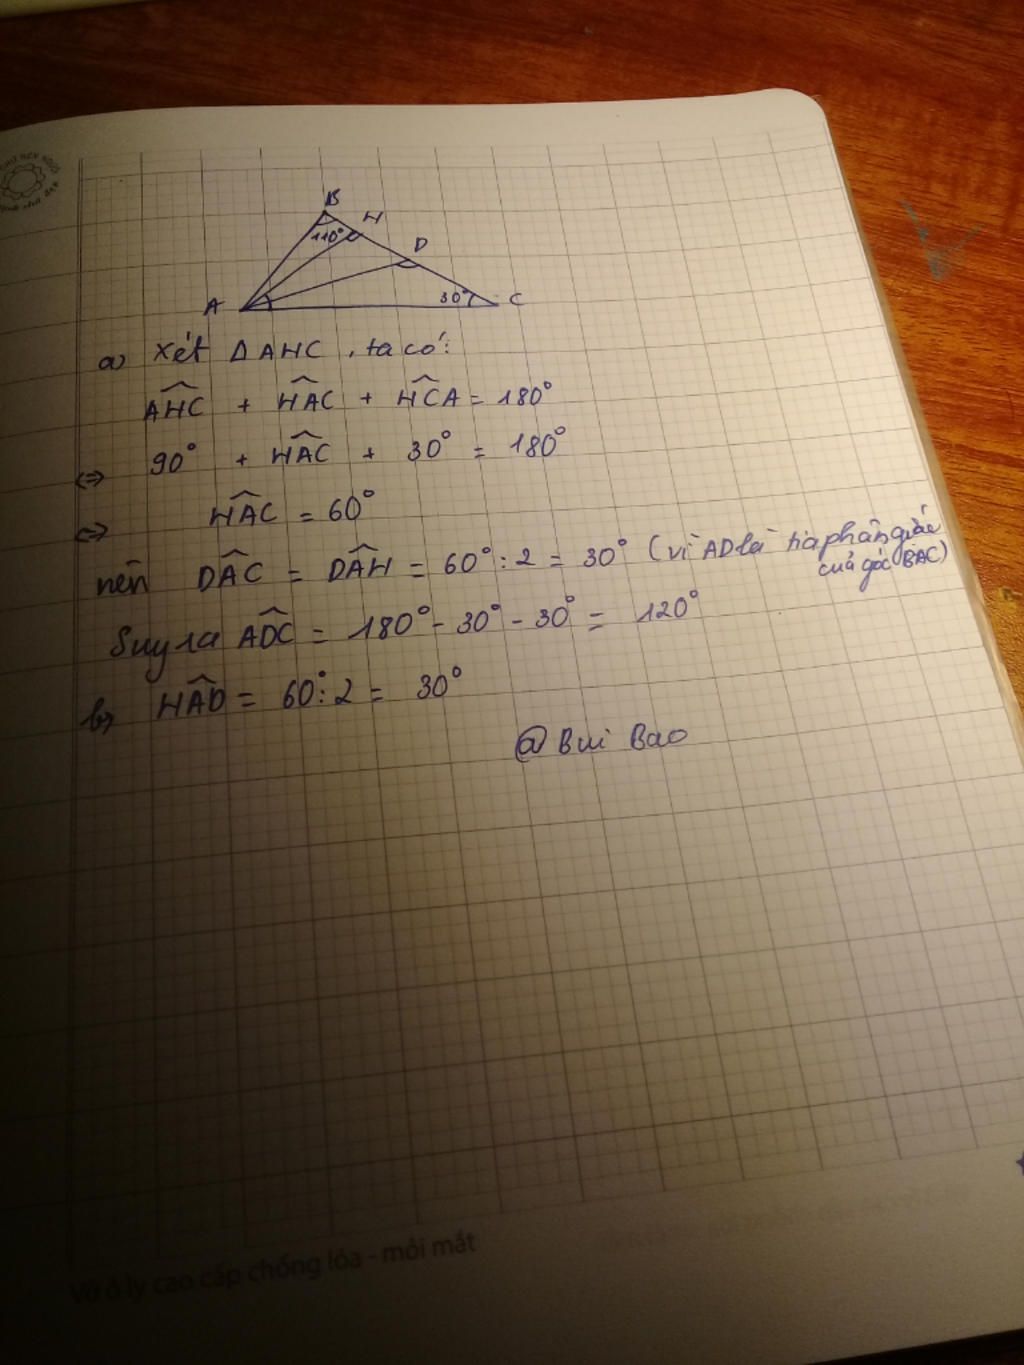 B
H
110°
D
A
30°
C
a) Xét ΔAHC, ta có:
AHC + HAC + HCA = 180°
⇔ 90° + HAC + 30° = 180°
⇔ HAC = 60°
nên DAC = DAH = 60° : 2 = 30° (vì AD là tia phân giác
của góc BAC)
Suy ra ADC = 180° - 30° - 30° = 120°
b) HAD = 60° : 2 = 30°
@ Bui Bao
Vở ô ly cao cấp chống lóa - mỏi mắt